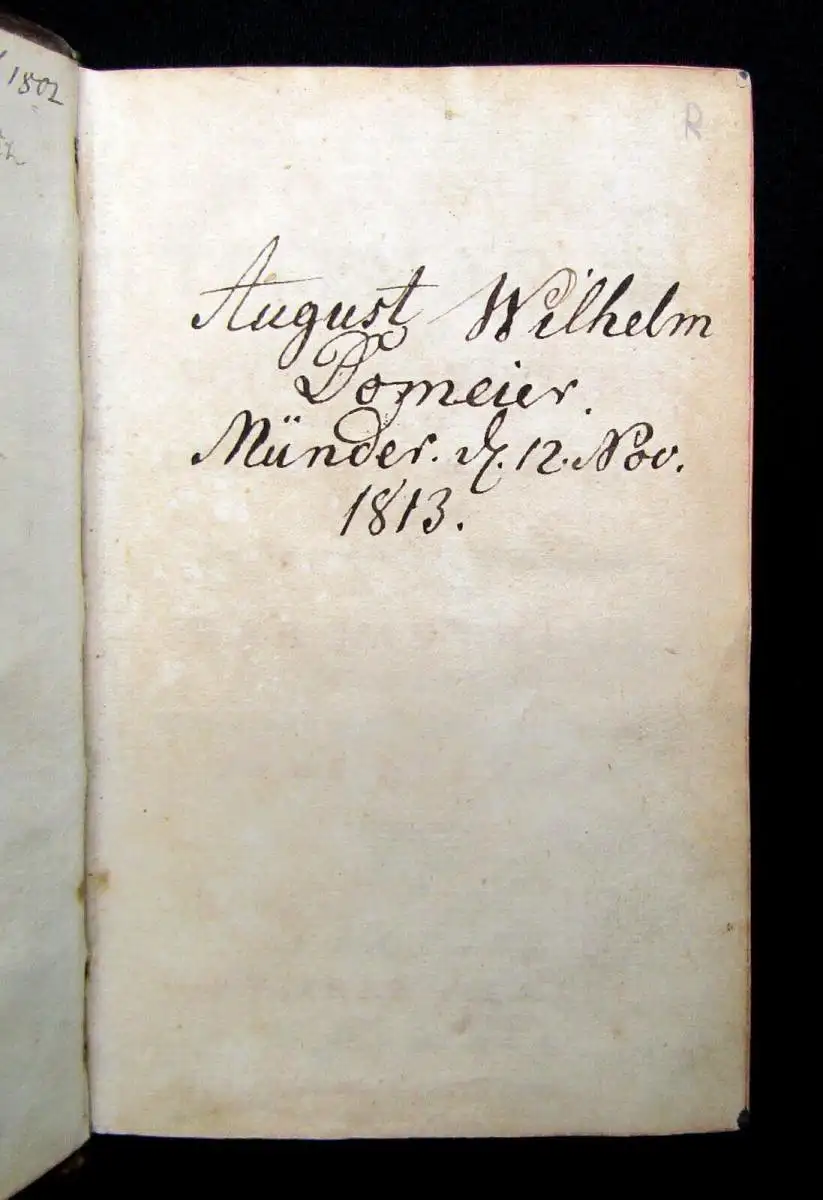 1802
R
August Wilhelm
Domeier.
Münder. d. 12. Nov.
1813.